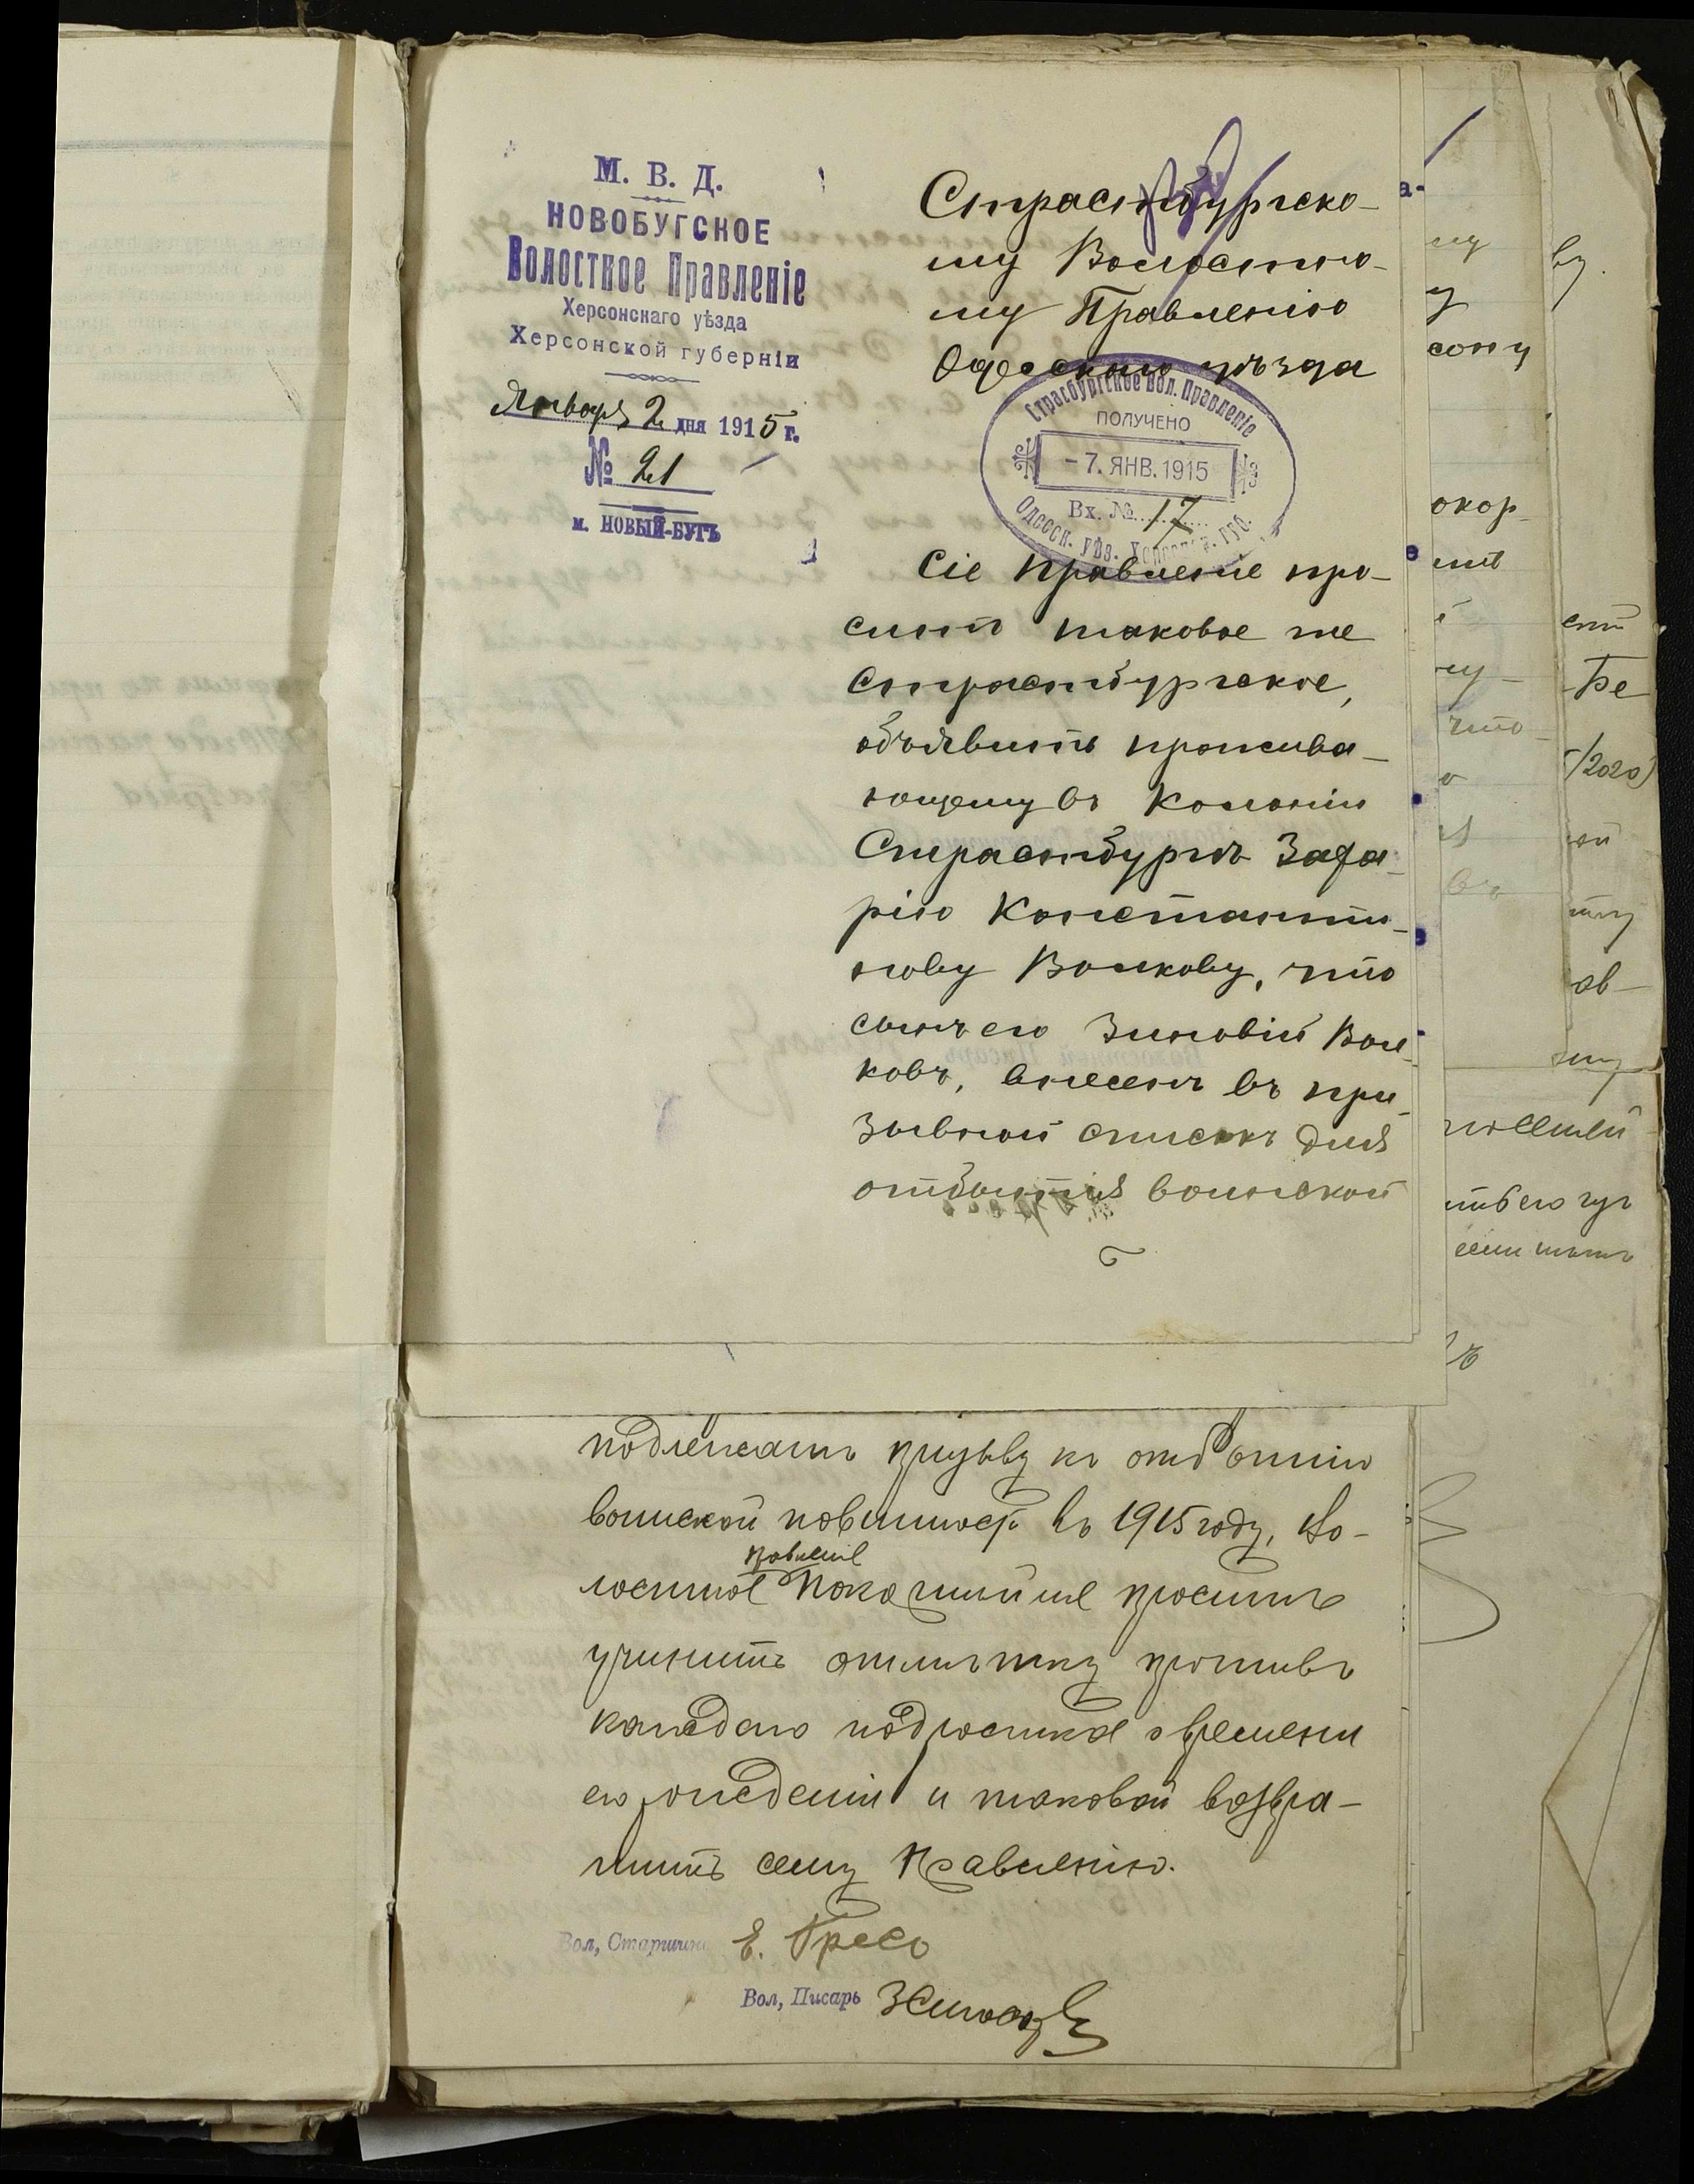 М. В. Д.
НОВОБУГСКОЕ
Волостное Правленіе
Херсонскаго уѣзда
Херсонской губерніи
Января 2 дня 1915 г.
№ 21
м. НОВЫЙ-БУГЪ
Страсбургско-
му Волостно-
му Правленію
Одесскаго уѣзда
Страсбургское Вол. Правленіе
ПОЛУЧЕНО
- 7. ЯНВ. 1915
Вх. № 17
Одесск. уѣз. Херсонск. губ.
Сіе Правленіе про-
ситъ таковое же
Страстбургское,
объявить прожива-
ющему въ колоніи
Страстбургъ Заха-
рію Константи-
нову Волкову, что
сынъ его Зиновій Вол-
ковъ, внесенъ въ при-
зывной списокъ для
отбытія воинской
подлежатъ призыву къ отбытію
воинской повинност. въ 1915 году, Во-
лостное правленіе покорнѣйше проситъ
учинить отмѣтку противъ
каждаго подростка о времени
его рожденія и таковой возвра-
тить сему Правленію.
Вол, Старшина Е.
Вол, Писарь
сону
окор-
что
въ
ву.
Бе
/2020)